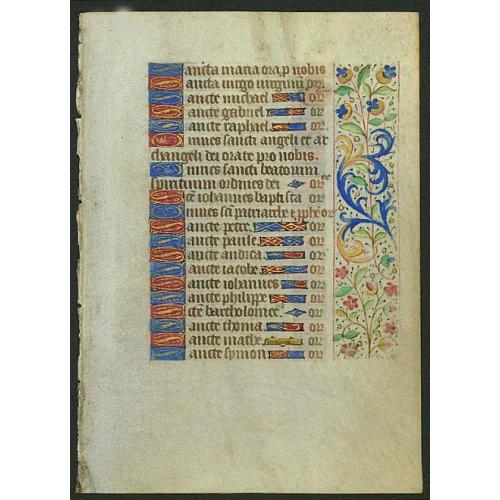 Sancta maria ora p nobis
Sancta uirgo uirginum or
Sancte michael or
Sancte gabriel or
Sancte raphael or
Omnes sancti angeli et ar
changeli dei orate pro nobis.
Omnes sancti beatorum
spirituum ordines dei or
Scē iohannes baptista or
Omnes scī patriarche et pphe or
Sancte petre. or
Sancte paule. or
Sancte andrea or
Sancte iacobe or
Sancte iohannes or
Sancte philippe or
Scē bartholomee. or
Sancte thoma or
Sancte mathee or
Sancte symon or